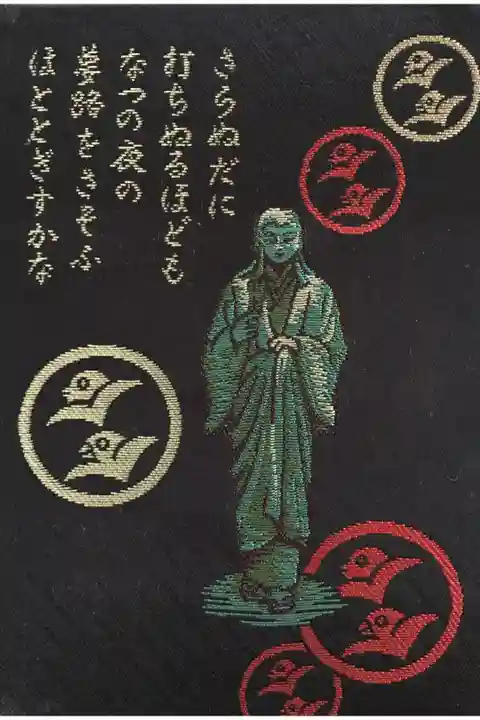 さらぬだに
打ちぬるほども
なつの夜の
夢路をさそふ
ほととぎすかな